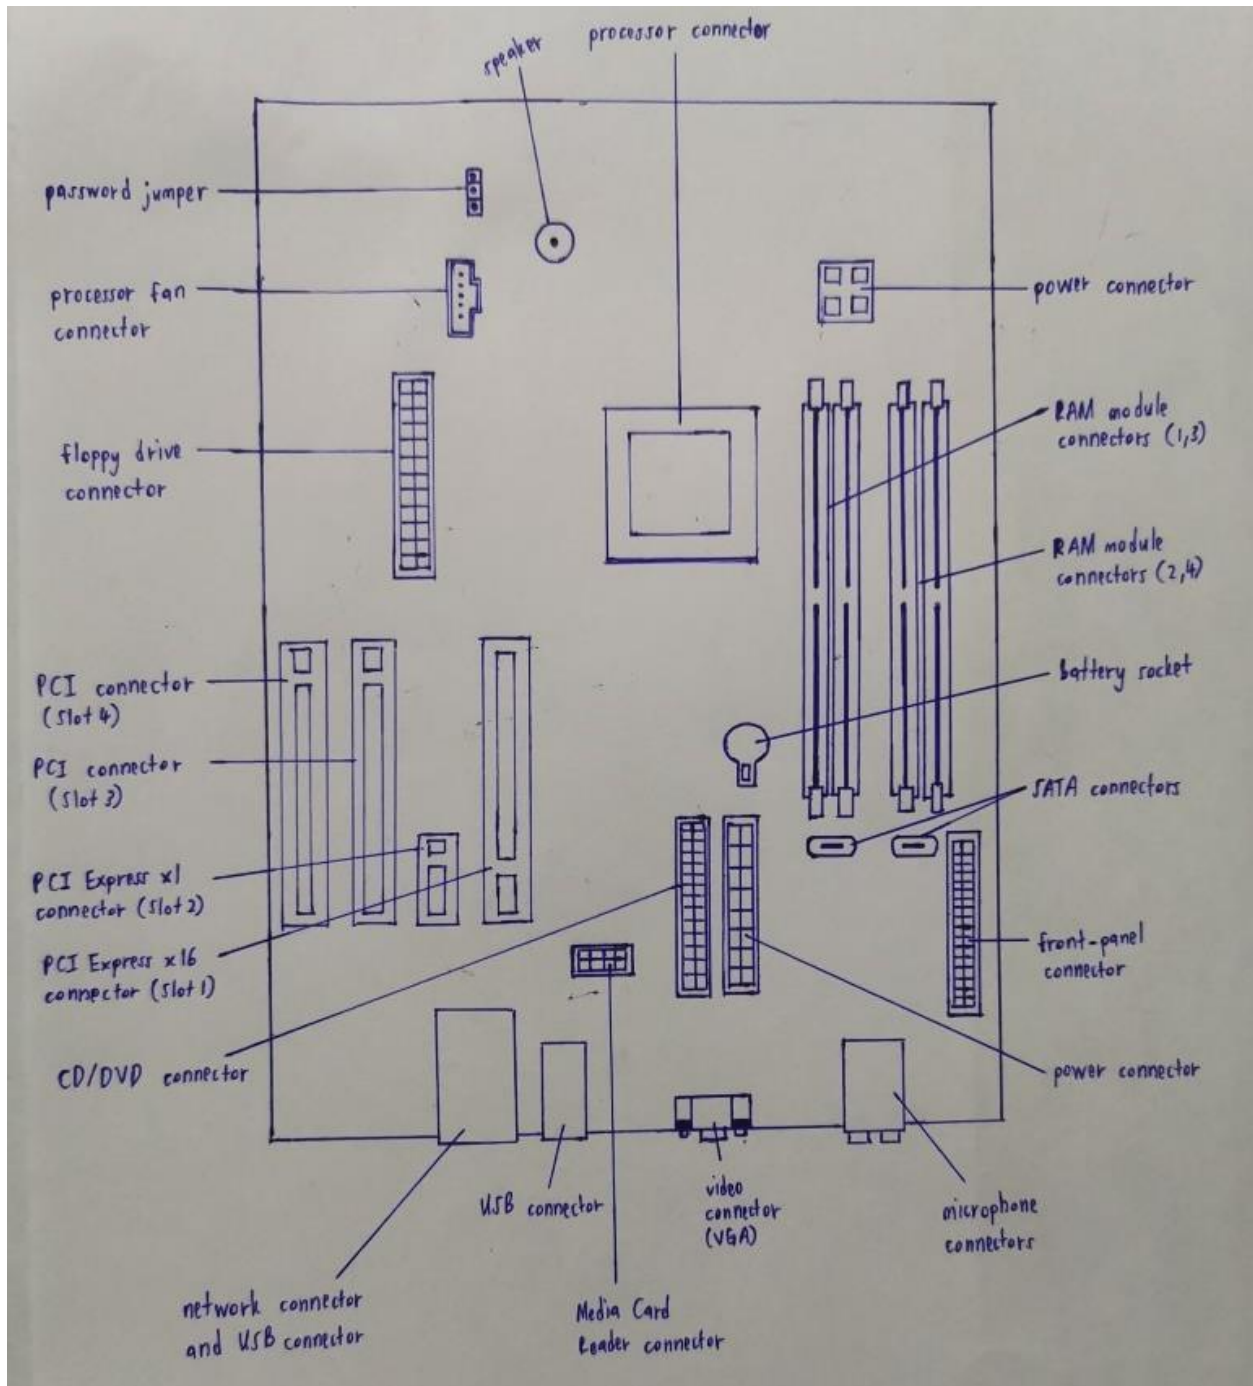 processor connector
speaker
password jumper
processor fan
connector
power connector
floppy drive
connector
RAM module
connectors (1,3)
RAM module
connectors (2,4)
battery socket
PCI connector
(Slot 4)
PCI connector
(Slot 3)
SATA connectors
PCI Express x1
connector (Slot 2)
PCI Express x16
connector (Slot 1)
front-panel
connector
CD/DVD connector
power connector
USB connector
video
connector
(VGA)
microphone
connectors
network connector
and USB connector
Media Card
Reader connector